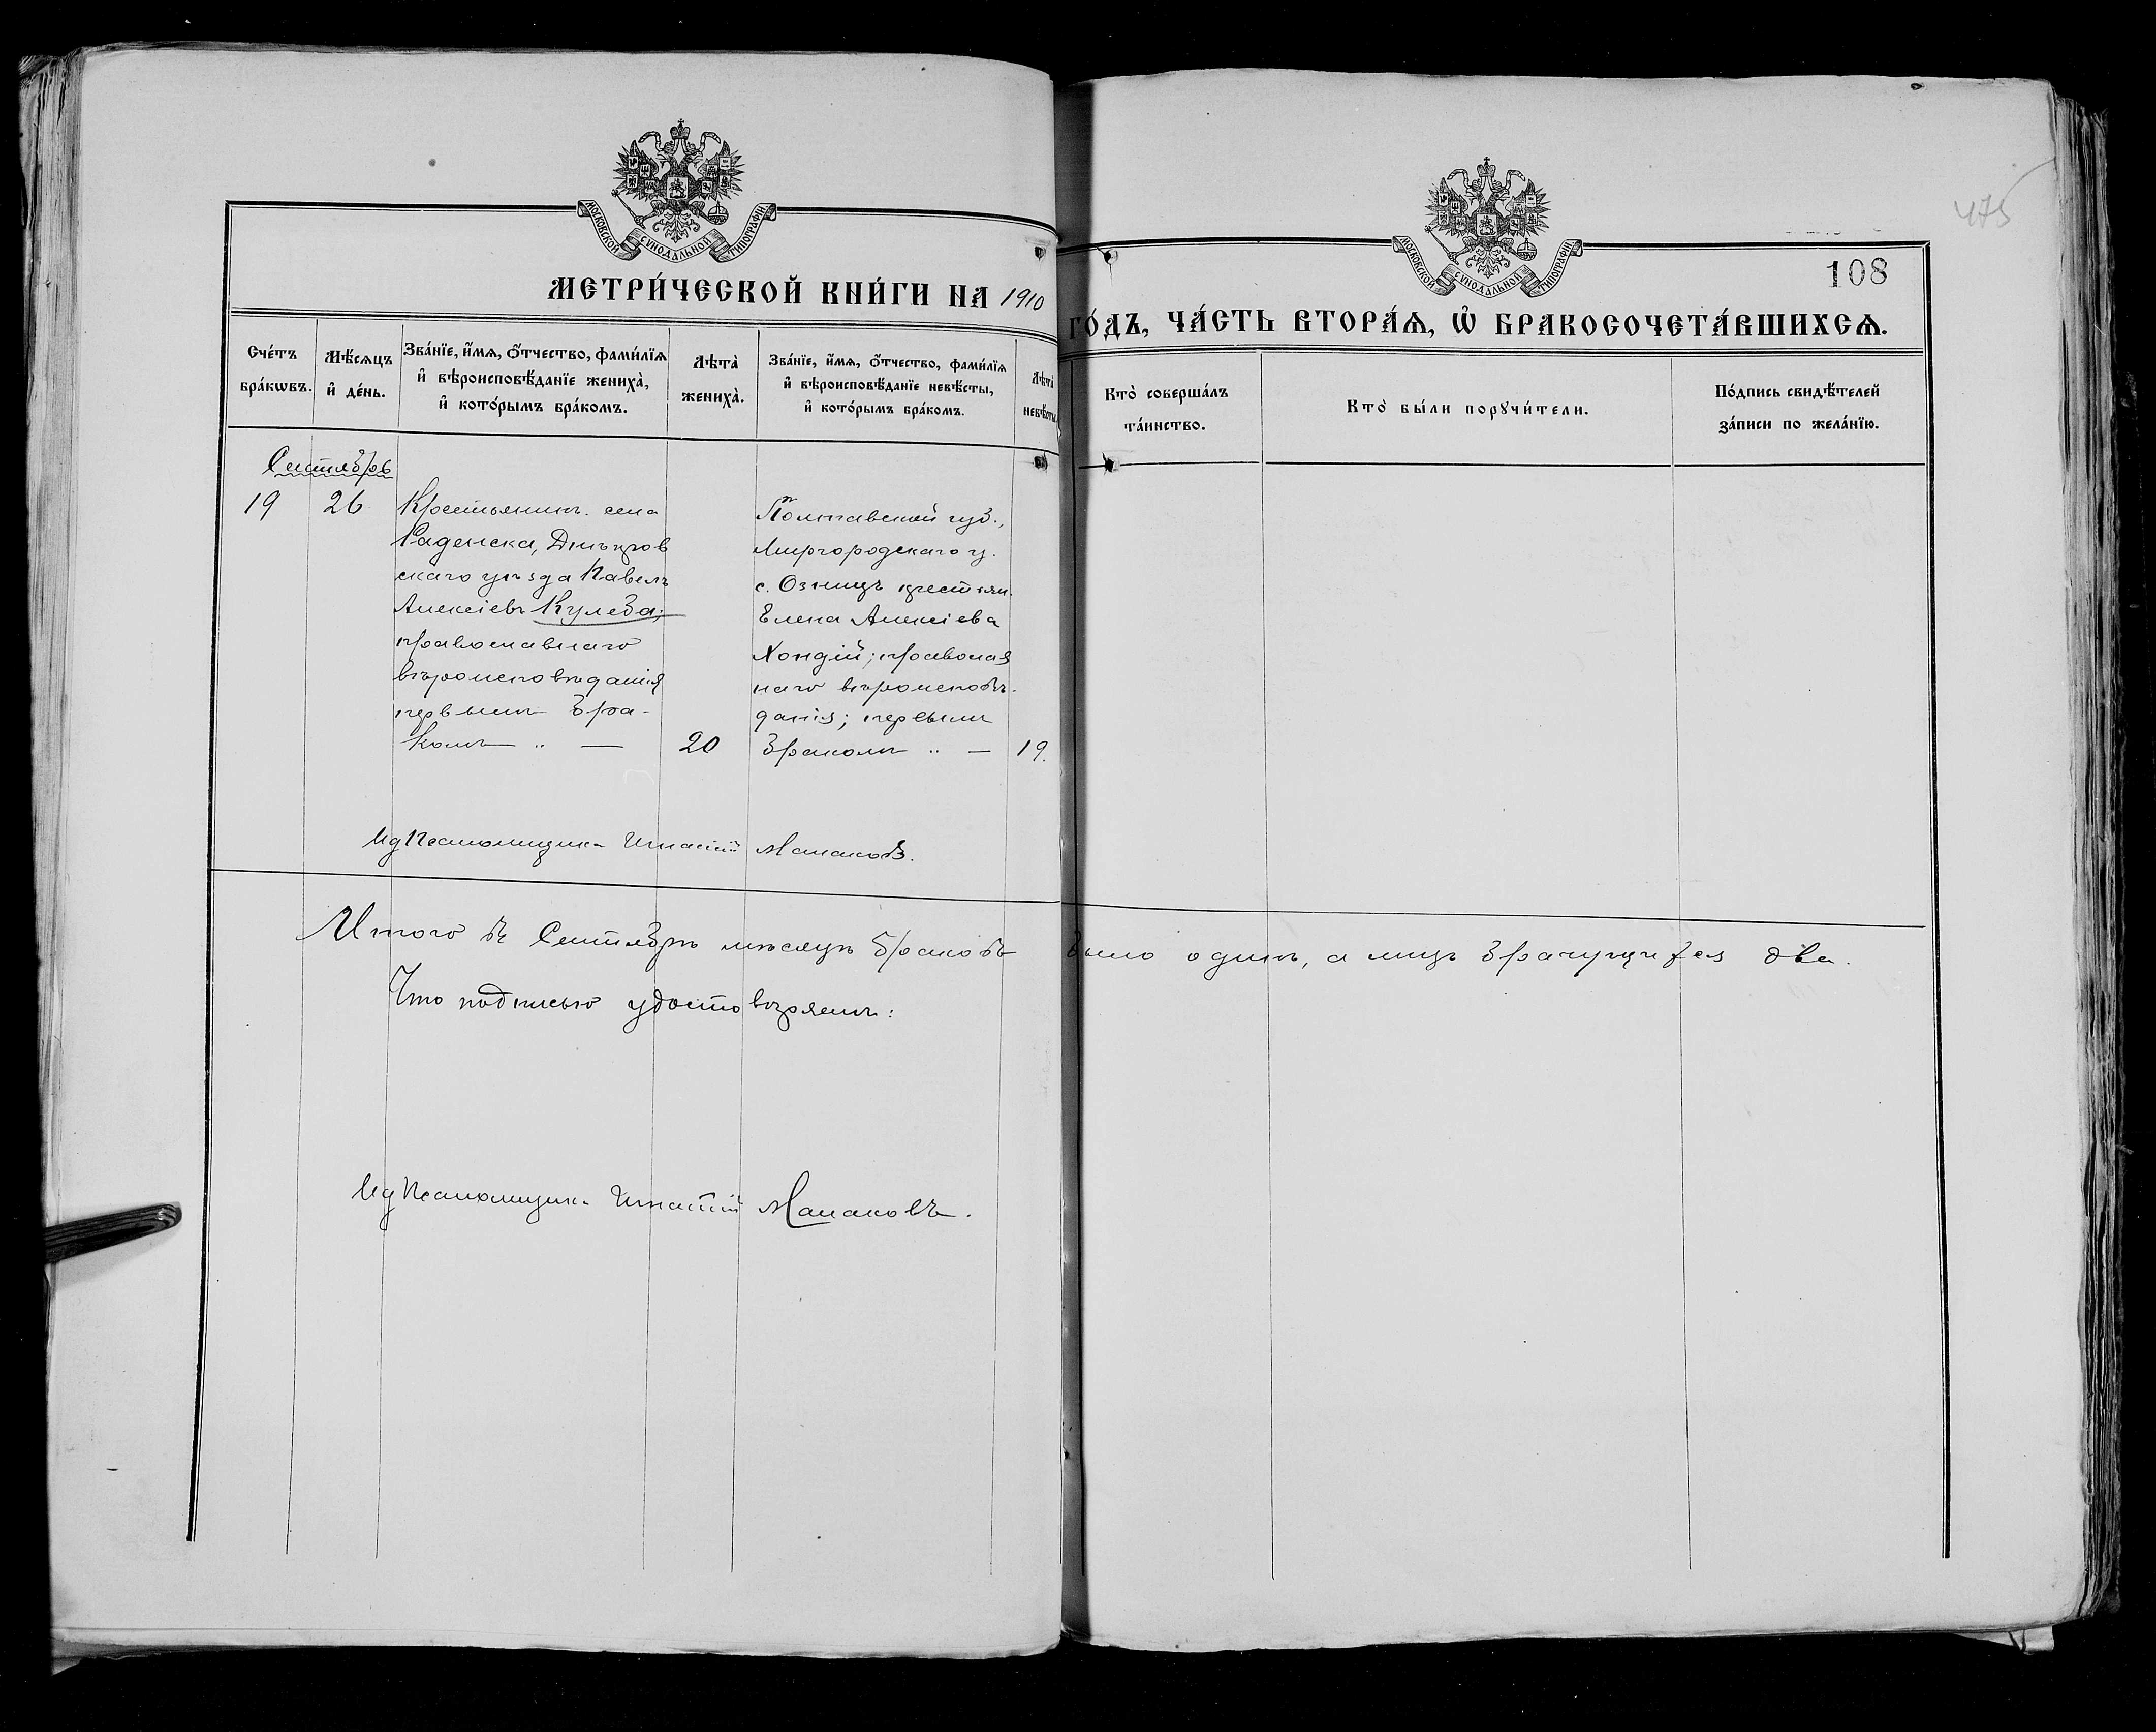 475
108
МОСКОВСКОЙ СѴНОДАЛЬНОЙ ТИПОГРАФІИ
МОСКОВСКОЙ СѴНОДАЛЬНОЙ ТИПОГРАФІИ
МЕТРИ́ЧЕСКОЙ КНИ́ГИ НА 1910 ГО́ДЪ, ЧА́СТЬ ВТОРА́Ѧ, Ѽ БРАКОСОЧЕТА́ВШИХСѦ.
Сче́тъ бра́кѡвъ.
Мѣ́сяцъ и҆ де́нь.
Зва́нїе, и҆́мѧ, ѻ҆́тчество, фами́лїѧ
и҆ вѣроисповѣ́данїе жениха̀,
и҆ кото́рымъ бра́комъ.
Лѣта̀ жениха̀.
Зва́нїе, и҆́мѧ, ѻ҆́тчество, фами́лїѧ
и҆ вѣроисповѣ́данїе невѣ́сты,
и҆ кото́рымъ бра́комъ.
Лѣта̀ невѣ́сты.
Кто̀ соверша́лъ
та́инство.
Кто̀ бы́ли порꙋчи́тели.
По́дпись свидѣ́телей
за́писи по жела́нїю.
Сентябрь
19 26
Крестьянинъ села
Раденска, Днѣпров
скаго уѣзда Павелъ
Алексіевъ Кулеба;
православнаго
вѣроисповѣданія
первымъ бра-
комъ „ — 20
Полтавской губ.,
Миргородскаго у.
с. крестьян.
Елена Алексіева
Хондій; православ
наго вѣроисповѣ-
данія; первымъ
бракомъ „ — 19.
Ид Псаломщика Игнатій Манаковъ.
Итого въ Сентябрѣ мѣсяцѣ браковъ было одинъ, а лицъ брачущихся два.
Что подписью удостовѣряемъ:
Ид Псаломщика Игнатій Манаковъ.